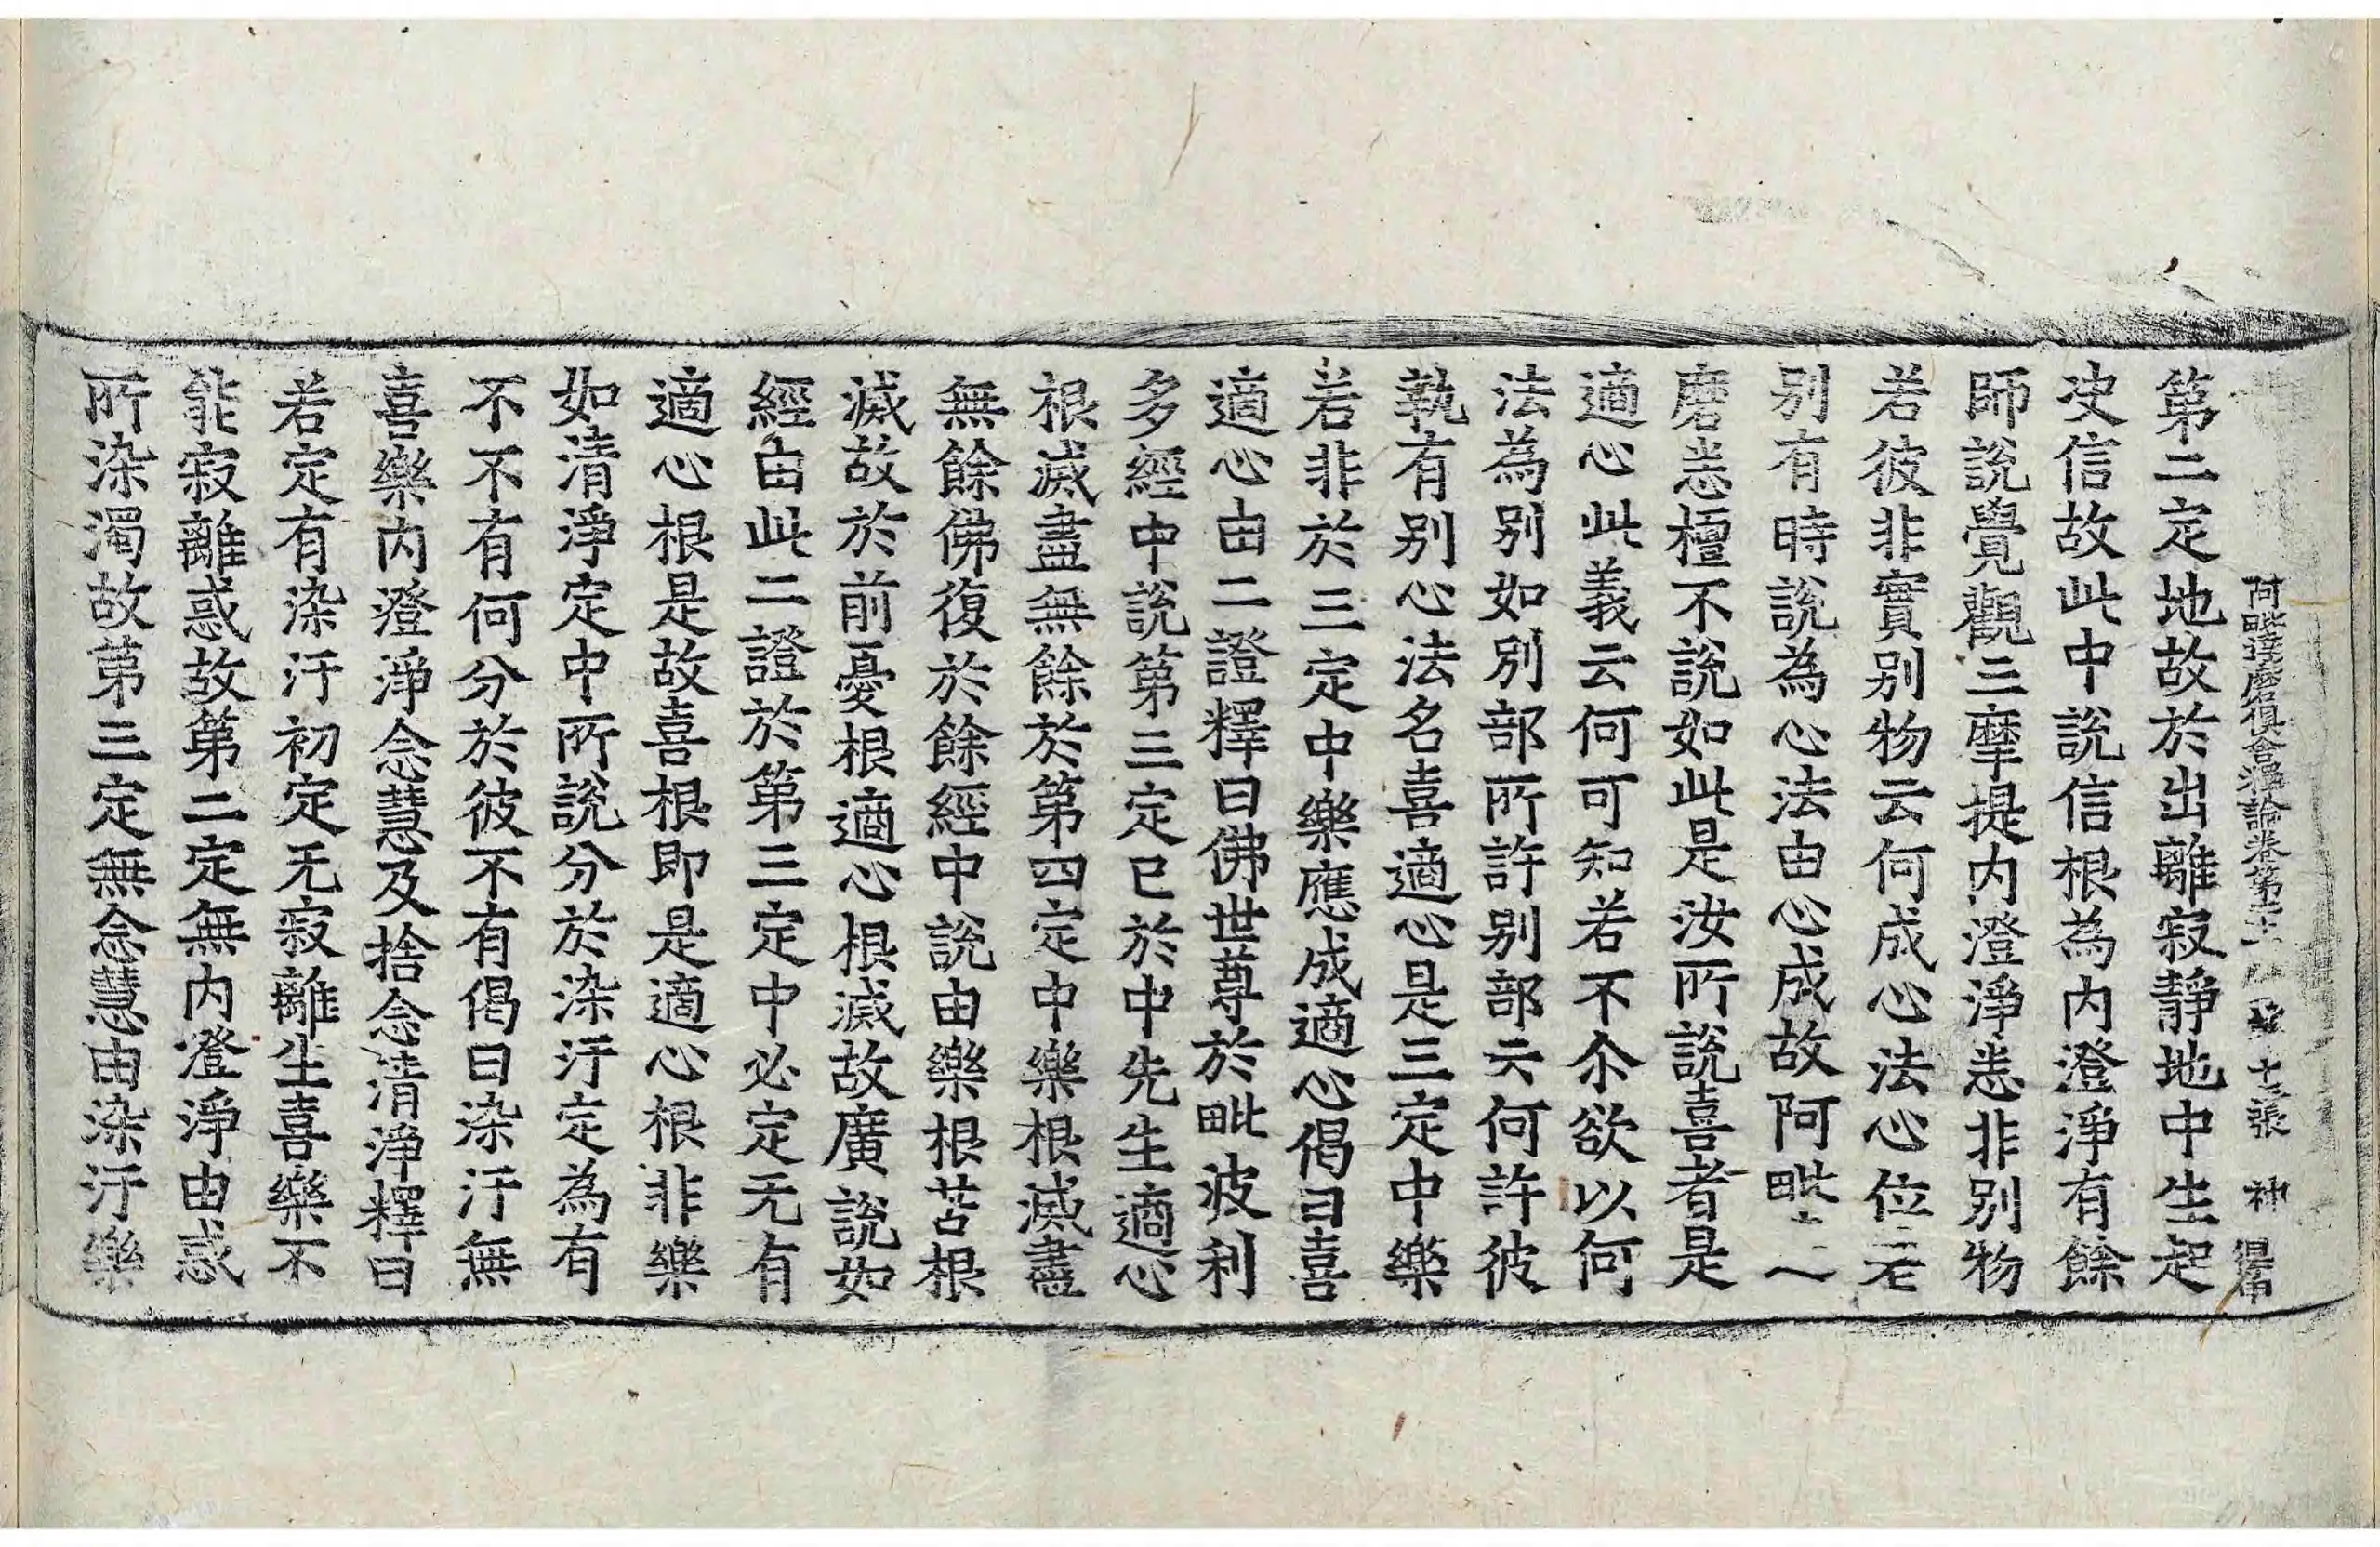 阿毗達磨俱舍釋論卷第二十一 十二張 神 得甲
第二定地故於出離寂靜地中生起
决信故此中說信根為內澄淨有餘
師說覺觀三摩提內澄淨恙非別物
若彼非實別物云何成心法心位差
別有時說為心法由心成故阿毗
磨恙檀不說如此是汝所說喜者是
適心此義云何可知若不尒欲以何
法為別如別部所許別部云何許彼
執有別心法名喜適心是三定中樂
若非於三定中樂應成適心偈曰喜
適心由二證釋曰佛世尊於毗波利
多經中說第三定已於中先生適心
根滅盡無餘於第四定中樂根滅盡
無餘佛復於餘經中說由樂根苦根
滅故於前憂根適心根滅故廣說如
經由此二證於第三定中必定无有
適心根是故喜根即是適心根非樂
如清淨定中所說分於染汙定為有
不不有何分於彼不有偈曰染汙無
喜樂內澄淨念慧及捨念清淨釋曰
若定有染汙初定无寂離生喜樂不
能寂離惑故第二定無內澄淨由惑
所染濁故第三定無念慧由染汙樂